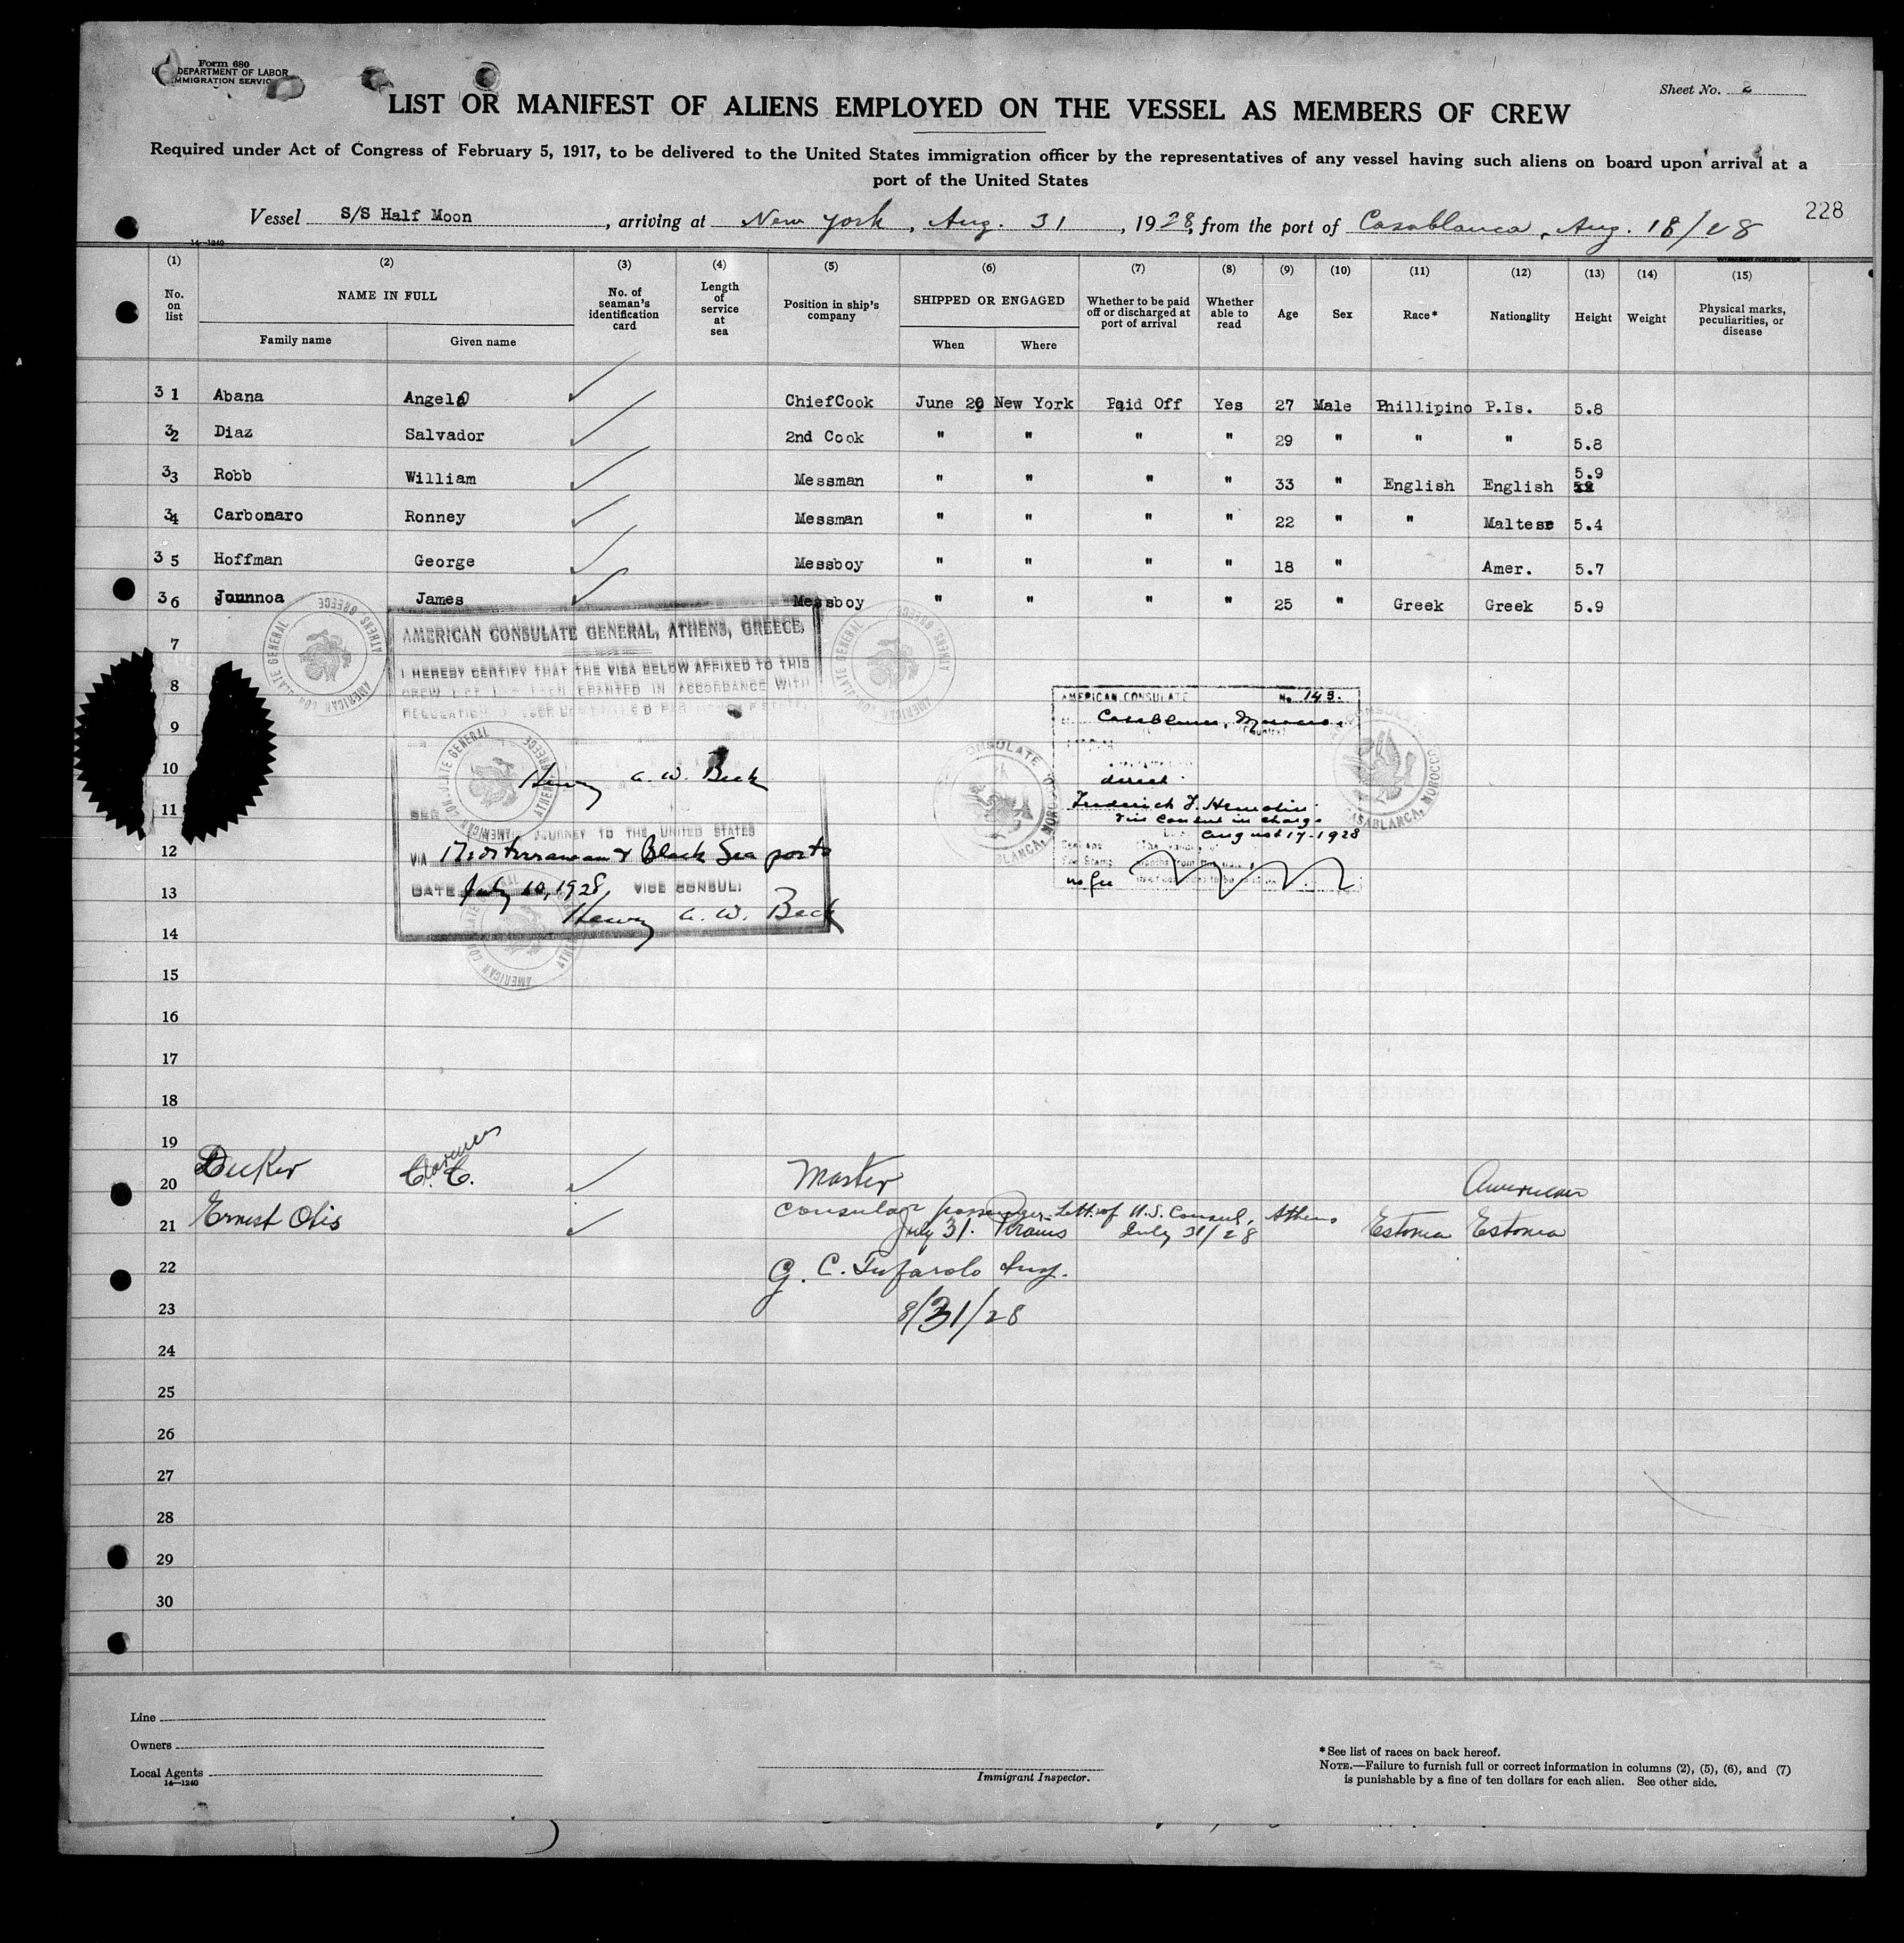 Form 680
DEPARTMENT OF LABOR
IMMIGRATION SERVICE
Sheet No. 2
LIST OR MANIFEST OF ALIENS EMPLOYED ON THE VESSEL AS MEMBERS OF CREW
Required under Act of Congress of February 5, 1917, to be delivered to the United States immigration officer by the representatives of any vessel having such aliens on board upon arrival at a
port of the United States
Vessel S/S Half Moon, arriving at New York, Aug. 31, 1928, from the port of Casablanca, Aug. 18/28
228
14-1240
(1) (2) (3) (4) (5) (6) (7) (8) (9) (10) (11) (12) (13) (14) (15)
No. on list NAME IN FULL Family name Given name No. of seaman's identification card Length of service at sea Position in ship's company SHIPPED OR ENGAGED When Where Whether to be paid off or discharged at port of arrival Whether able to read Age Sex Race* Nationality Height Weight Physical marks, peculiarities, or disease
31 Abana Angelo ChiefCook June 20 New York Paid Off Yes 27 Male Phillipino P.Is. 5.8
32 Diaz Salvador 2nd Cook " " " " 29 " " " 5.8
33 Robb William Messman " " " " 33 " English English 5.9
34 Carbonaro Ronney Messman " " " " 22 " " Maltese 5.4
35 Hoffman George Messboy " " " " 18 " Amer. 5.7
36 James Messboy " " " " 25 " Greek Greek 5.9
7
8
9
10
11
12
13
14
15
16
17
18
19
20
21
22
23
24
25
26
27
28
29
30
AMERICAN CONSULATE GENERAL, ATHENS, GREECE,
I HEREBY CERTIFY THAT THE VISA BELOW AFFIXED TO THIS
CREW LIST HAS BEEN GRANTED IN ACCORDANCE WITH
Henry A. W. Beck
JOURNEY TO THE UNITED STATES
VIA Mediterranean & Black Sea ports
DATE July 10, 1928, VICE CONSUL
Henry A. W. Beck
AMERICAN CONSULATE GENERAL ATHENS, GREECE
AMERICAN CONSULATE No. 143.
Casablanca, Morocco.
(Country)
direct
Vice Consul in charge
August 17-1928
no fee
AMERICAN CONSULATE CASABLANCA, MOROCCO
Decker C. C. Clarence Master American
Ernest Otis Consular passenger-Lett. of U.S. Consul, Athens
July 31. Piraeus July 31/28 Estonia Estonia
G. C. Tufarolo Insp.
8/31/28
Line
Owners
Local Agents
14-1240
Immigrant Inspector.
*See list of races on back hereof.
NOTE.—Failure to furnish full or correct information in columns (2), (5), (6), and (7)
is punishable by a fine of ten dollars for each alien. See other side.